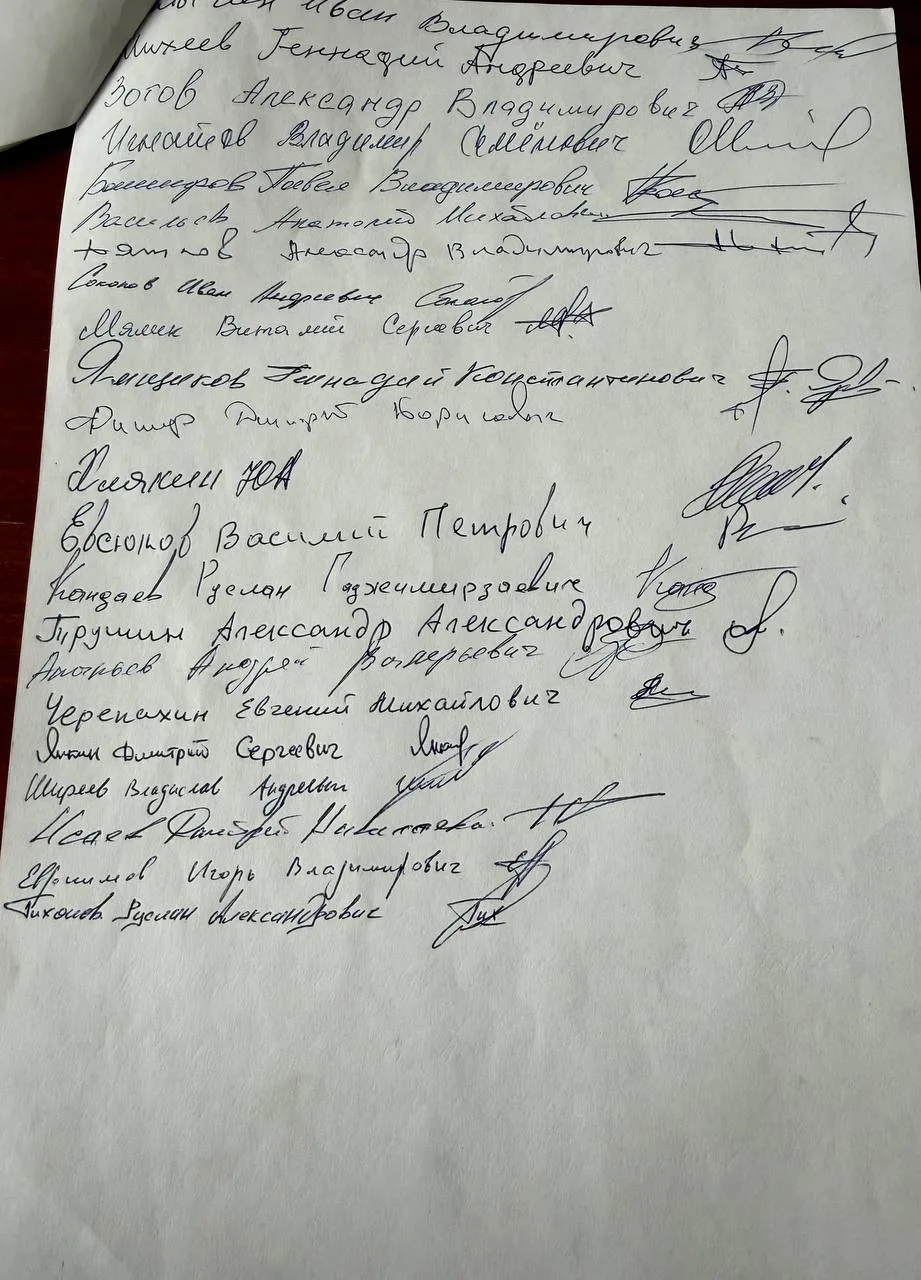 Иван Владимирович
Михеев Геннадий Андреевич
Зотов Александр Владимирович
Игнатов Владимир Семёнович
Башкиров Павел Владимирович
Васильев Анатолий Михайлович
Александр Владимирович
Соколов Иван Андреевич
Мялик Виталий Сергеевич
Ямщиков Геннадий Константинович
Дмитрий Борисович
Хлякин ЮА
Евсюков Василий Петрович
Кандаев Руслан Гаджимирзоевич
Трушин Александр Александрович
Андрей Валерьевич
Черепахин Евгений Михайлович
Янкин Дмитрий Сергеевич
Ширеев Владислав Андреевич
Исаев Дмитрий
Ефимов Игорь Владимирович
Тихонов Руслан Александрович Тих